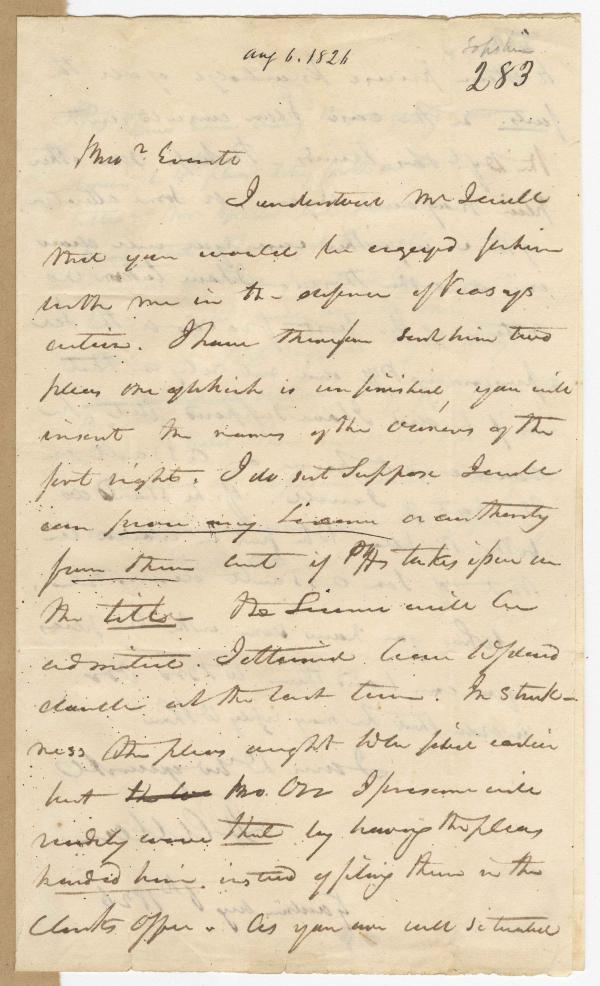 Aug 6. 1826
283
Bro.r Everett
I understand Mr Sewell
that you would be engaged for him
with me in the defence of Veasys
action. I have therefore sent him two
pleas one of which is unfinished, you will
insert the names of the owners of the
right. I do not suppose Sewell
can prove any License or authority
from them but if Plfs takes issue on
the title the License will be
admitted. I obtained leave to plead
double at the last term. In strict-
ness the pleas ought to be filed earlier
but Bro. Orr I presume will
readily waive that by having the pleas
handed him instead of filing them in the
Clerks office. As you are well situated